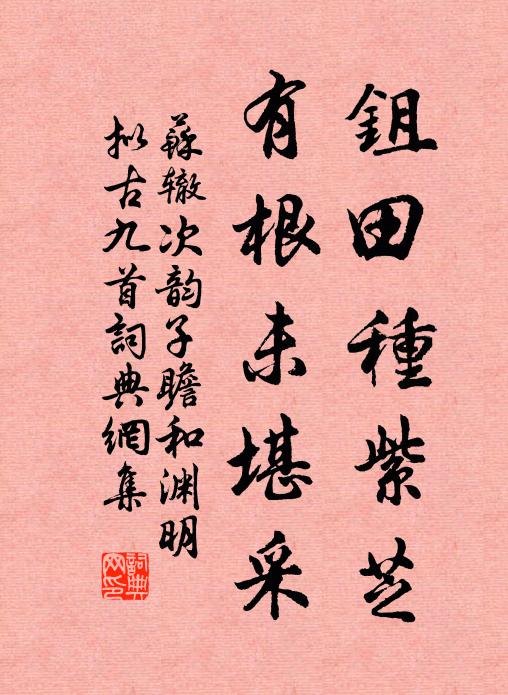 鉏田種紫芝
有根未堪采
蘇辙次韵子瞻和渊明
拟古九首詞典網集
詞典網印